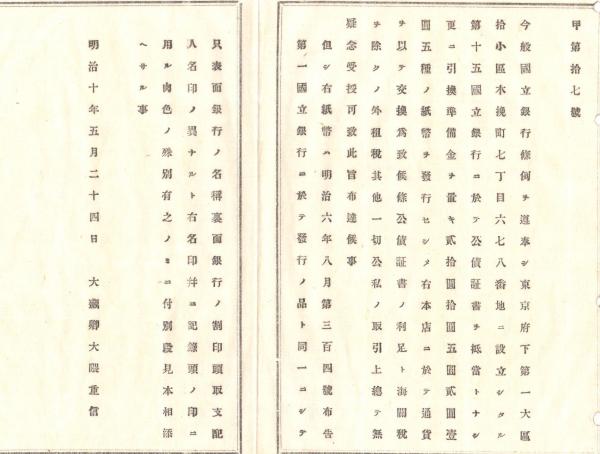 甲第拾七號
今般國立銀行條例ヲ遵奉シ東京府下第一大區
拾小區木挽町七丁目六七八番地ニ設立シタル
第十五國立銀行ニ於テ公債証書ヲ抵當トナシ
更ニ引換準備金ヲ置キ貳拾圓拾圓五圓貳圓壹
圓五種ノ紙幣ヲ發行セシメ右本店ニ於テ通貨
ヲ以テ交換爲致候條公債証書ノ利足ト海關稅
ヲ除クノ外租稅其他一切公私ノ取引上總テ無
疑念受授可致此旨布達候事
但シ右紙幣ハ明治六年八月第三百四號布告
第一國立銀行ニ於テ發行ノ品ト同一ニシテ
只表面銀行ノ名稱裏面銀行ノ割印頭取支配
人名印ノ異ナルト右名印幷ニ記錄頭ノ印ニ
用ル肉色ノ殊別有之ノミニ付別段見本相添
ヘサル事
明治十年五月二十四日 大藏卿大隈重信